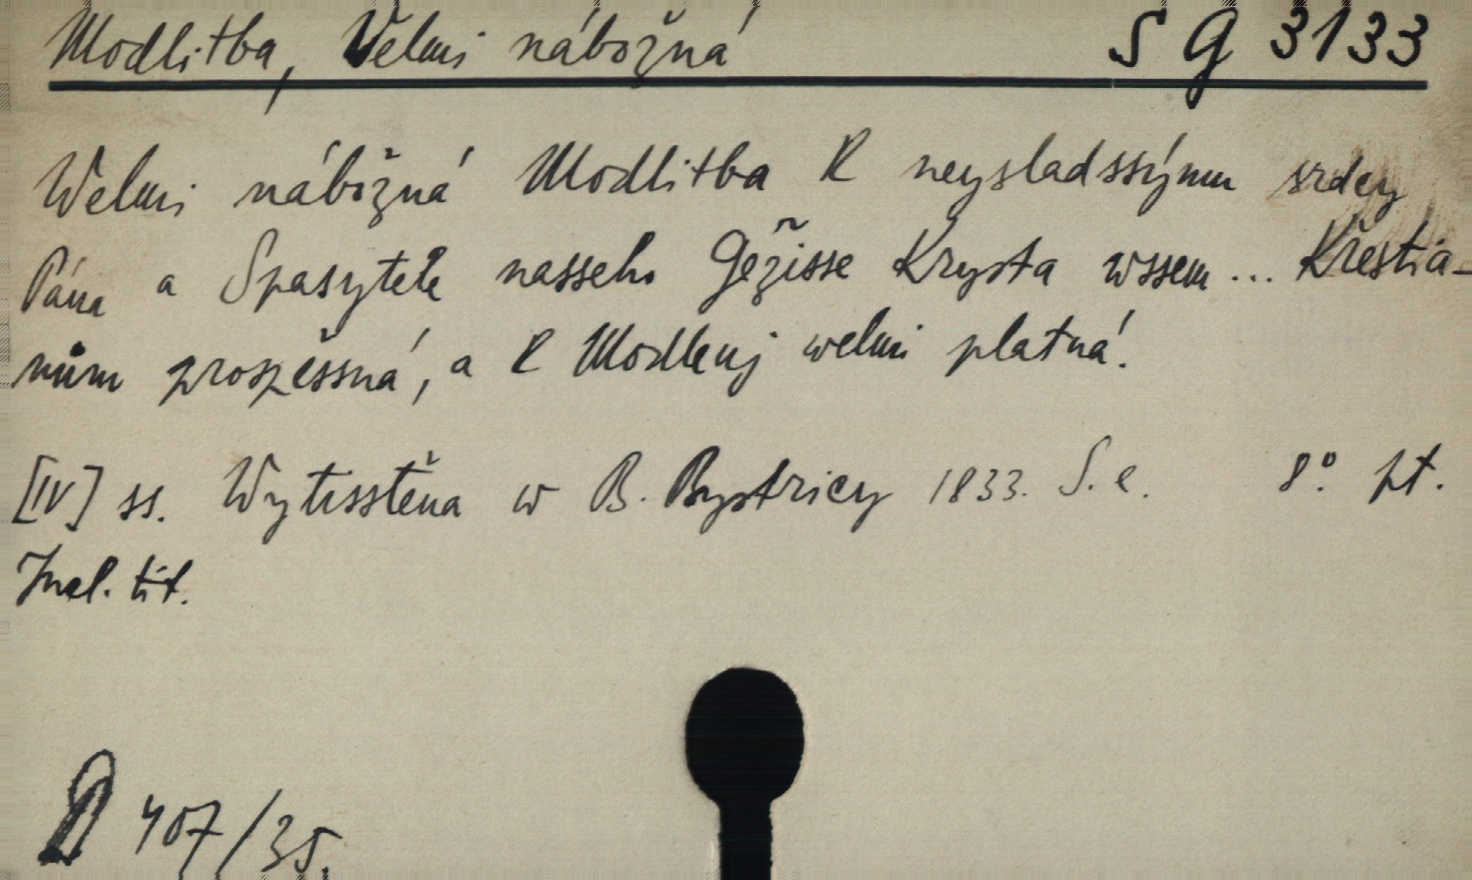 Modlitba, Velmi nábožná SG 3133
Welmi nábožná Modlitba K neysladssýmu srdcy
Pána a Spasytele nasseho Gežisse Krysta wssem ... Křestia-
nům prospěssná, a K Modlenj welmi platná.
[IV] ss. Wytisstěna w B. Bystricy 1833. S. e. 8° pt.
Incl. tit.
D 407/35.